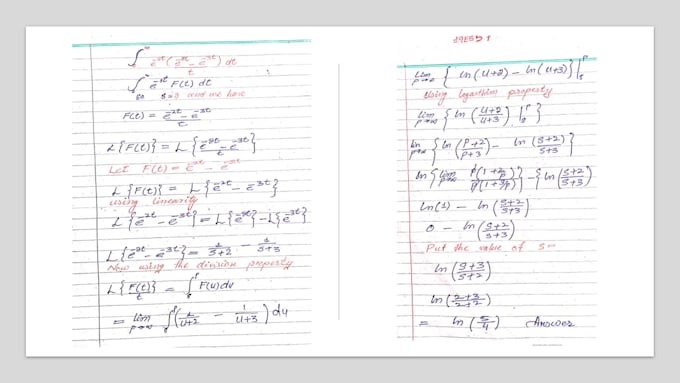 ∫₀^∞ e^-2t (e^-2t - e^-3t)/t dt
∫₀^∞ e^-st F(t) dt
so s=2 and we have
F(t) = (e^-2t - e^-3t)/t
L{F(t)} = L{(e^-2t - e^-3t)/t}
Let F(t) = e^-2t - e^-3t
L{F(t)} = L{e^-2t - e^-3t}
using linearity
L{e^-2t - e^-3t} = L{e^-2t} - L{e^-3t}
L{e^-2t - e^-3t} = 1/(s+2) - 1/(s+3)
Now using the division property
L{F(t)/t} = ∫ F(u) du
= lim p→∞ ∫ (1/(u+2) - 1/(u+3)) du
lim p→∞ {ln(u+2) - ln(u+3)}|
Using logarithm property
lim p→∞ {ln((u+2)/(u+3))|}
lim p→∞ {ln((p+2)/(p+3)) - ln((s+2)/(s+3))}
ln{lim p→∞ p(1+2/p)/p(1+3/p)} - {ln((s+2)/(s+3))}
ln(1) - ln((s+2)/(s+3))
0 - ln((s+2)/(s+3))
Put the value of s=
ln((s+3)/(s+2))
ln((2+3)/(2+2))
= ln(5/4) Answer